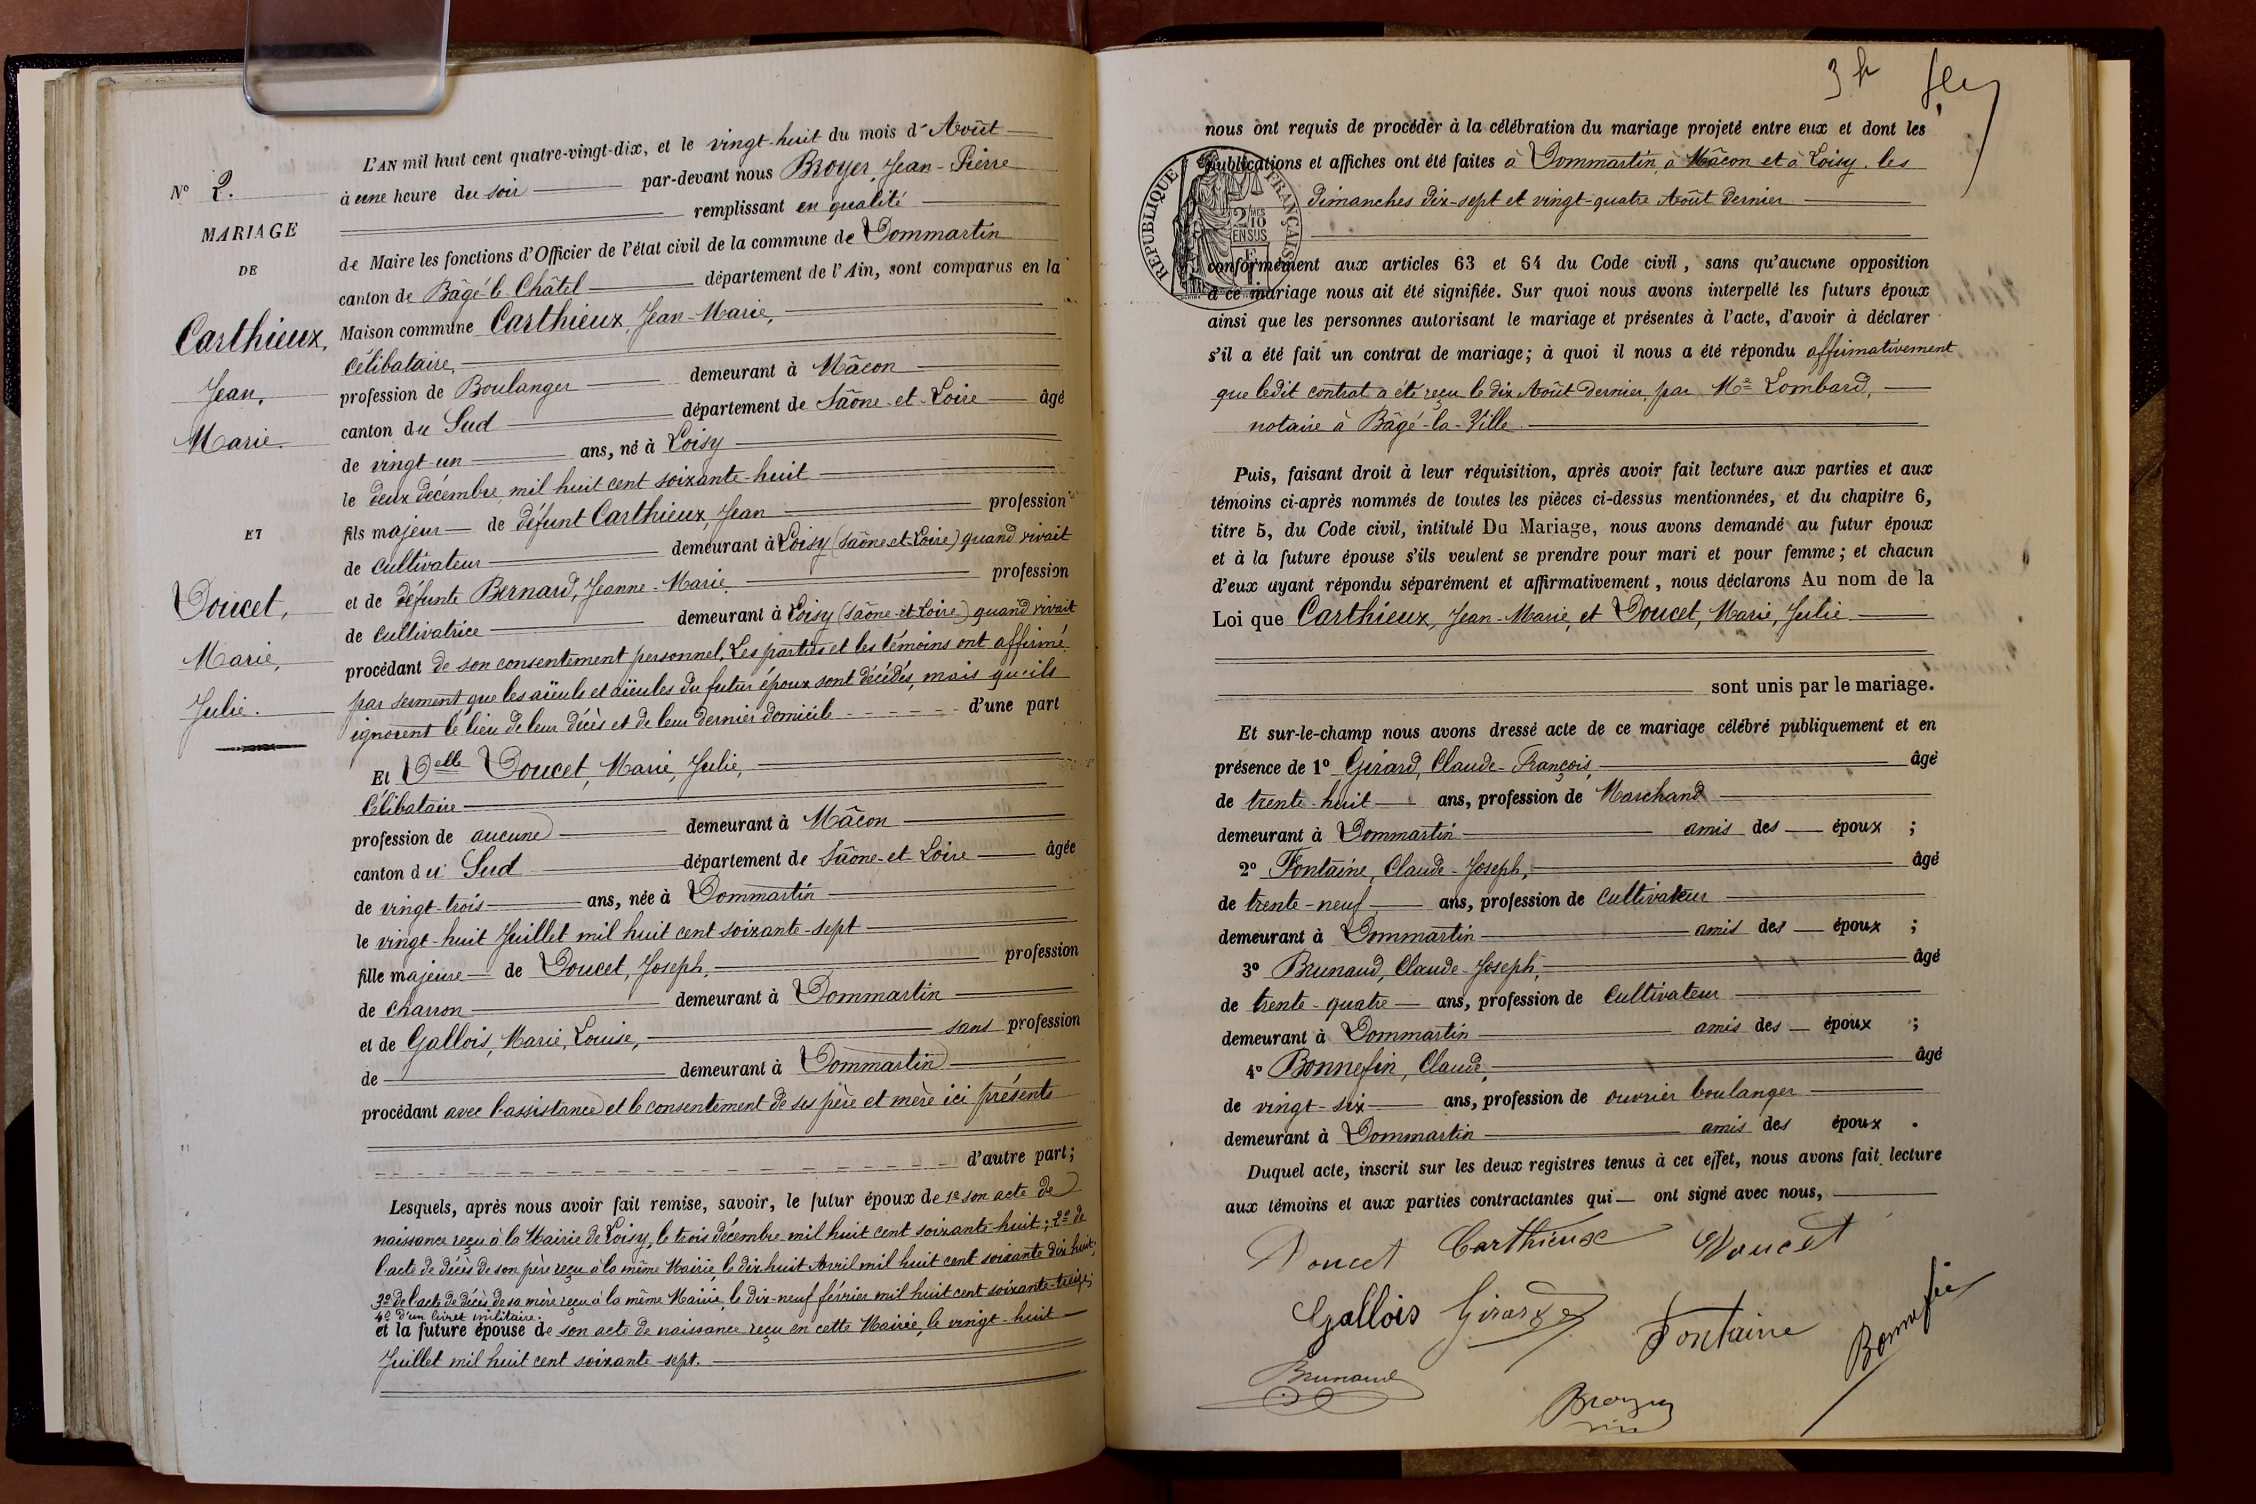 Nº 2.
MARIAGE
DE
Carthieux,
Jean,
Marie.
ET
Doucet,
Marie,
Julie.
L'AN mil huit cent quatre-vingt-dix, et le vingt-huit du mois d'Août
à une heure du soir par-devant nous Broyer, Jean-Pierre
remplissant en qualité
de Maire les fonctions d'Officier de l'état civil de la commune de Dommartin
canton de Bâgé-le-Châtel département de l'Ain, sont comparus en la
Maison commune Carthieux, Jean-Marie,
célibataire,
profession de Boulanger demeurant à Mâcon
canton du Sud département de Saône-et-Loire âgé
de vingt-un ans, né à Loisy
le deux décembre mil huit cent soixante-huit
fils majeur de défunt Carthieux, Jean profession
de cultivateur demeurant à Loisy (Saône-et-Loire) quand vivait
et de défunte Bernard, Jeanne-Marie profession
de cultivatrice demeurant à Loisy (Saône-et-Loire) quand vivait
procédant de son consentement personnel. Les parties et les témoins ont affirmé
par serment que les aïeuls et aïeules du futur époux sont décédés, mais qu'ils
ignorent le lieu de leur décès et de leur dernier domicile d'une part
Et Delle Doucet, Marie, Julie,
célibataire
profession de aucune demeurant à Mâcon
canton du Sud département de Saône-et-Loire âgée
de vingt-trois ans, née à Dommartin
le vingt-huit Juillet mil huit cent soixante-sept
fille majeure de Doucet, Joseph, profession
de charron demeurant à Dommartin
et de Gallois, Marie, Louise, sans profession
de demeurant à Dommartin
procédant avec l'assistance et le consentement de ses père et mère ici présents
d'autre part;
Lesquels, après nous avoir fait remise, savoir, le futur époux de 1º son acte de
naissance reçu à la Mairie de Loisy, le trois décembre mil huit cent soixante-huit; 2º de
l'acte de décès de son père reçu à la même Mairie, le dix-huit Avril mil huit cent soixante dix huit;
3º de l'acte de décès de sa mère reçu à la même Mairie, le dix-neuf février mil huit cent soixante-treize;
4º d'un livret militaire.
et la future épouse de son acte de naissance reçu en cette Mairie, le vingt-huit
Juillet mil huit cent soixante-sept.
3 h
nous ont requis de procéder à la célébration du mariage projeté entre eux et dont les
publications et affiches ont été faites à Dommartin, à Mâcon et à Loisy, les
dimanches dix-sept et vingt-quatre Août dernier
REPUBLIQUE FRANÇAISE
2/10
EN SUS
conformément aux articles 63 et 64 du Code civil, sans qu'aucune opposition
à ce mariage nous ait été signifiée. Sur quoi nous avons interpellé les futurs époux
ainsi que les personnes autorisant le mariage et présentes à l'acte, d'avoir à déclarer
s'il a été fait un contrat de mariage; à quoi il nous a été répondu affirmativement
que ledit contrat a été reçu le dix Août dernier, par Me Lombard,
notaire à Bâgé-la-Ville
Puis, faisant droit à leur réquisition, après avoir fait lecture aux parties et aux
témoins ci-après nommés de toutes les pièces ci-dessus mentionnées, et du chapitre 6,
titre 5, du Code civil, intitulé Du Mariage, nous avons demandé au futur époux
et à la future épouse s'ils veulent se prendre pour mari et pour femme; et chacun
d'eux ayant répondu séparément et affirmativement, nous déclarons Au nom de la
Loi que Carthieux, Jean-Marie, et Doucet, Marie, Julie
sont unis par le mariage.
Et sur-le-champ nous avons dressé acte de ce mariage célébré publiquement et en
présence de 1º Girard, Claude-François, âgé
de trente-huit ans, profession de Marchand
demeurant à Dommartin amis des époux ;
2º Fontaine, Claude-Joseph, âgé
de trente-neuf ans, profession de cultivateur
demeurant à Dommartin amis des époux ;
3º Brunaud, Claude-Joseph, âgé
de trente-quatre ans, profession de cultivateur
demeurant à Dommartin amis des époux ;
4º Bonnefin, Claude, âgé
de vingt-six ans, profession de ouvrier boulanger
demeurant à Dommartin amis des époux .
Duquel acte, inscrit sur les deux registres tenus à cet effet, nous avons fait lecture
aux témoins et aux parties contractantes qui ont signé avec nous,
Doucet Carthieux Doucet
Gallois Girard Fontaine Bonnefin
Brunaud Broyer